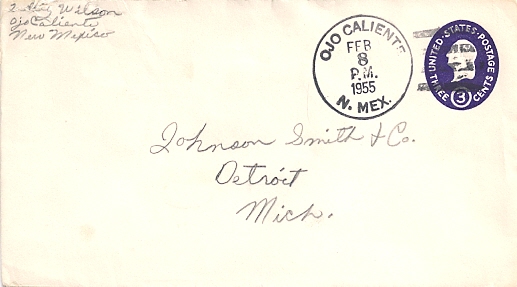 Wilson
Ojo Caliente
New Mexico
OJO CALIENTE
FEB
8
P.M.
1955
N. MEX.
UNITED·STATES·POSTAGE
THREE 3 CENTS
Johnson Smith & Co.
Detroit
Mich.